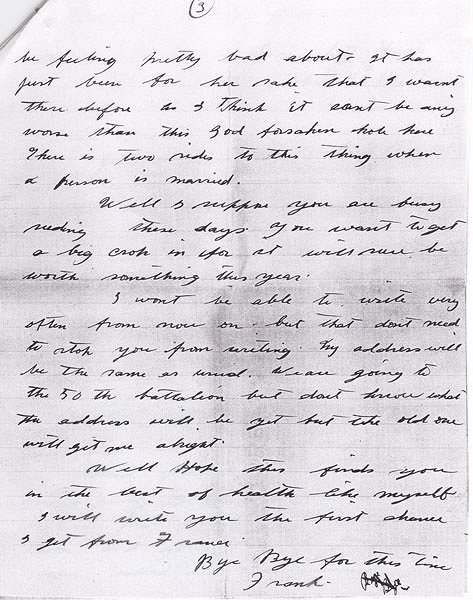 3
be feeling pretty bad about. It has
just been for her sake that I wasnt
there before as I think it cant be any
worse than this God forsaken hole here
There is two sides to this thing when
a person is married.
Well I suppose you are busy
seeding these days you want to get
a big crop in for it will sure be
worth something this year.
I wont be able to write very
often from now on but that dont need
to stop you from writing. My address will
be the same as usual. We are going to
the 50th battalion but dont know what
the address will be yet but the old one
will get me alright.
Well Hope this finds you
in the best of health like myself
I will write you the first chance
I get from France
Bye Bye for this time
Frank.